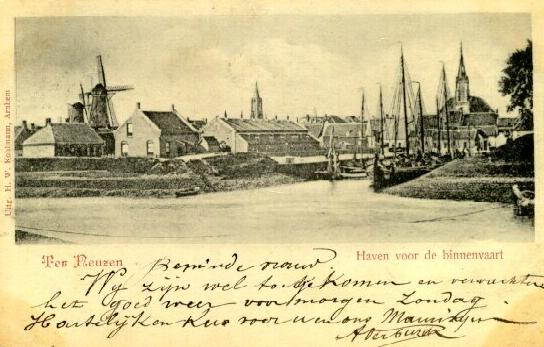 Uitg. H. W. Kohlmann, Arnhem
Ter Neuzen
Haven voor de binnenvaart
Beminde vrouw
Wij zijn wel te komen en verwachten
het goed weer voor morgen Zondag
Hartelijken kus voor u en ons